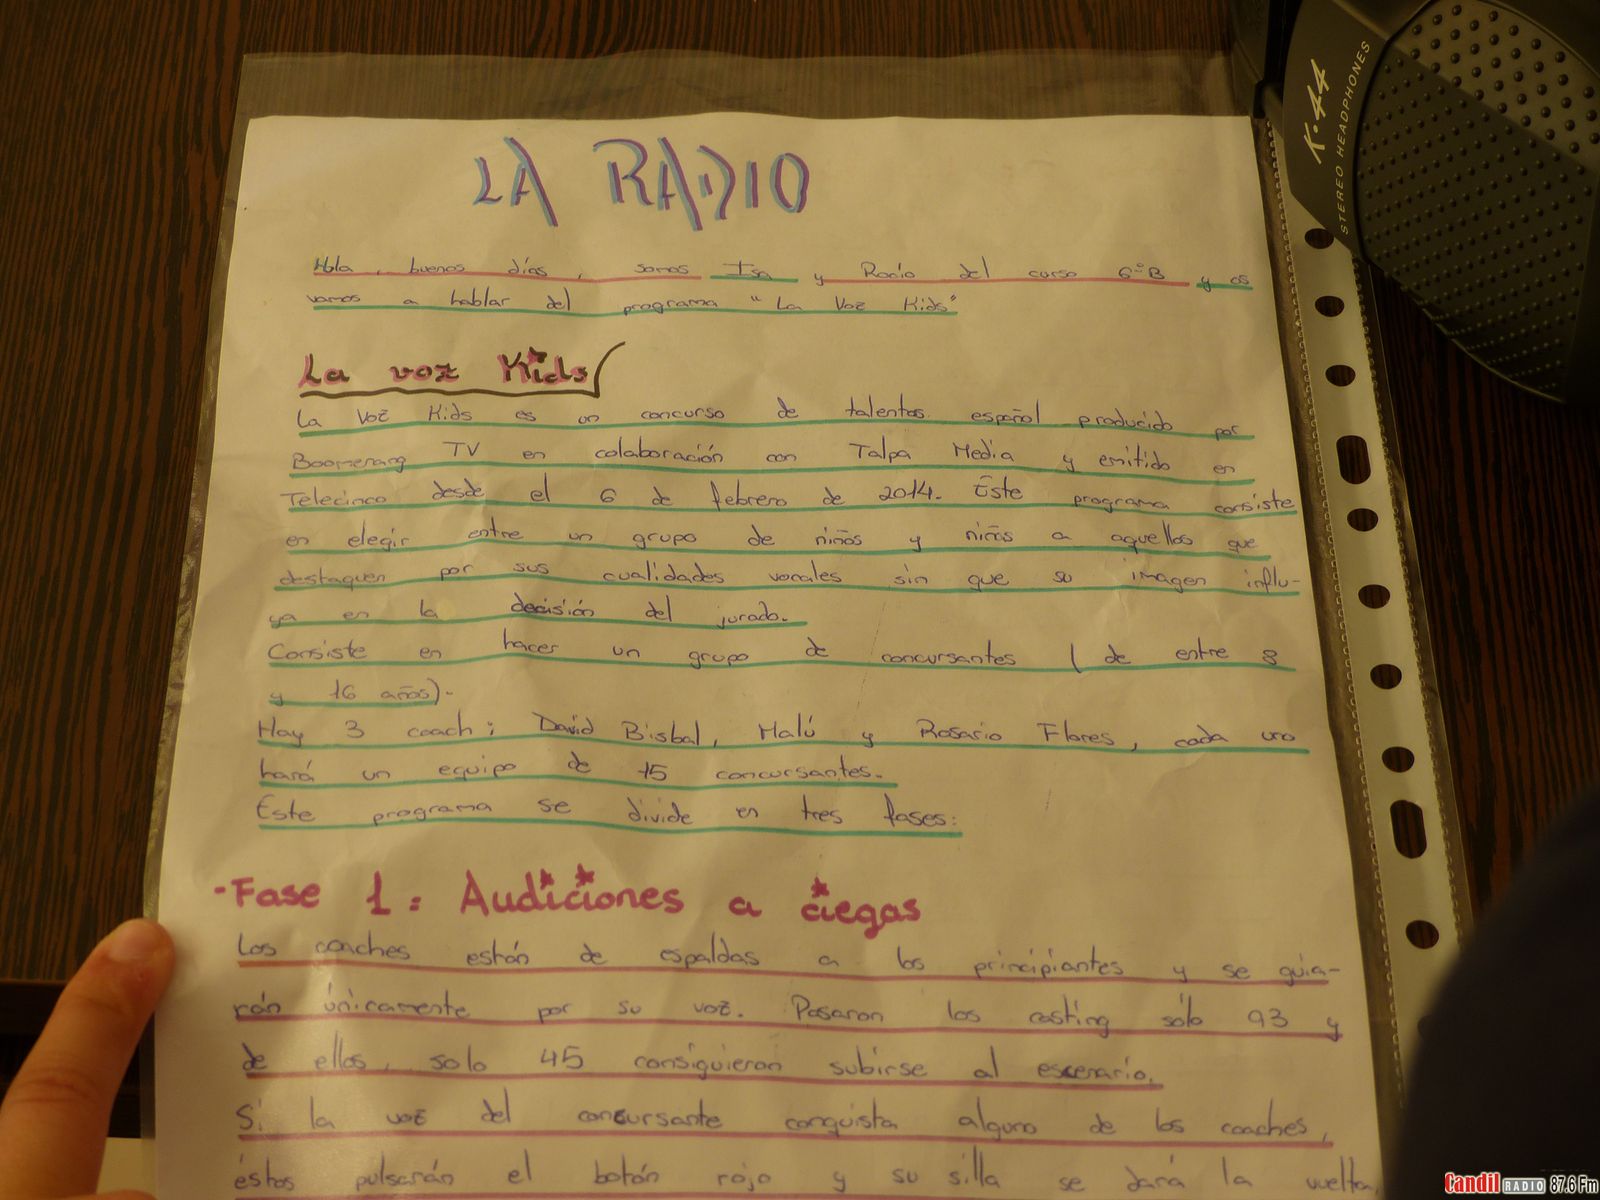 LA RADIO
Hola, buenos días, somos Isa y Rocío del curso 6ºB y os
vamos a hablar del programa "La Voz Kids"
La voz Kids
La Voz Kids es un concurso de talentos español producido por
Boomerang TV en colaboración con Talpa Media y emitido en
Telecinco desde el 6 de febrero de 2014. Este programa consiste
en elegir entre un grupo de niños y niñas a aquellos que
destaquen por sus cualidades vocales sin que su imagen influ-
ya en la decisión del jurado.
Consiste en hacer un grupo de concursantes (de entre 8
y 16 años).
Hay 3 coach: David Bisbal, Malú y Rosario Flores, cada uno
hará un equipo de 15 concursantes.
Este programa se divide en tres fases:
-Fase 1: Audiciones a ciegas
Los coaches están de espaldas a los principiantes y se guia-
rán únicamente por su voz. Pasaron los casting sólo 93 y
de ellos, solo 45 consiguieron subirse al escenario.
Si la voz del concursante conquista alguno de los coaches,
éstos pulsarán el botón rojo y su silla se dará la vuelta.
K·44
STEREO HEADPHONES
Candil RADIO 87.6 Fm